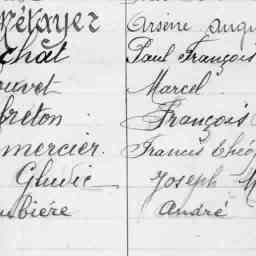 Métayer Arsène Augu
chât Paul François
ouvet Marcel
breton François
mercier. Francis Théo
Gludic Joseph M
bière André